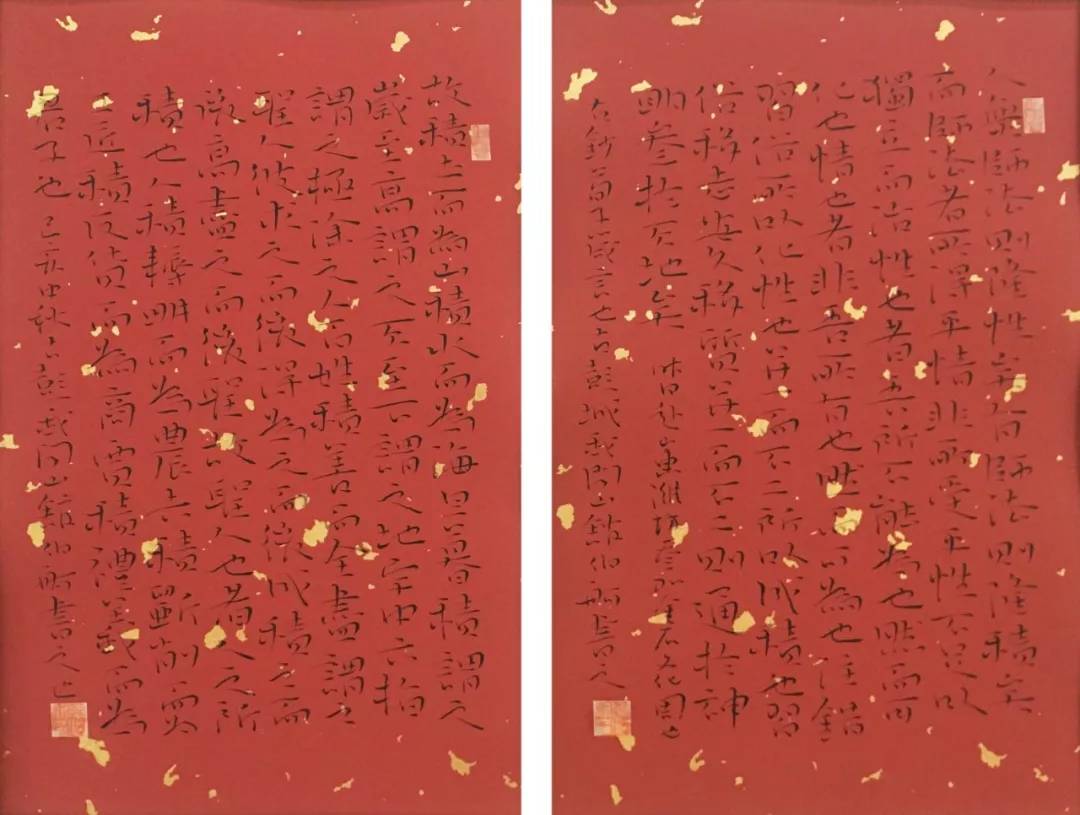 人無師法則隆性矣有師法則隆積矣
而師法者所得乎情非所受乎性不足以
獨立而治性也者吾所不能為也然而可
化也情也者非吾所有也然而可為也注錯
習俗所以化性也并一而不二所以成積也習
俗移志安久移質并一而不二則通於神
明參於天地矣 休日赴山東濰坊
右鈔荀子箴言也古彭城閒山館伯舸書之
故積土而為山積水而為海旦暮積謂之
歲至高謂之天至下謂之地宇中六指
謂之極涂之人百姓積善而全盡謂之
聖人彼求之而後得為之而後成積之而
後高盡之而後聖故聖人也者人之所
積也人積耨畊而為農夫積斲削而為
工匠積反貨而為商賈積禮義而為
君子也 己亥中秋古彭閒山館伯舸書之